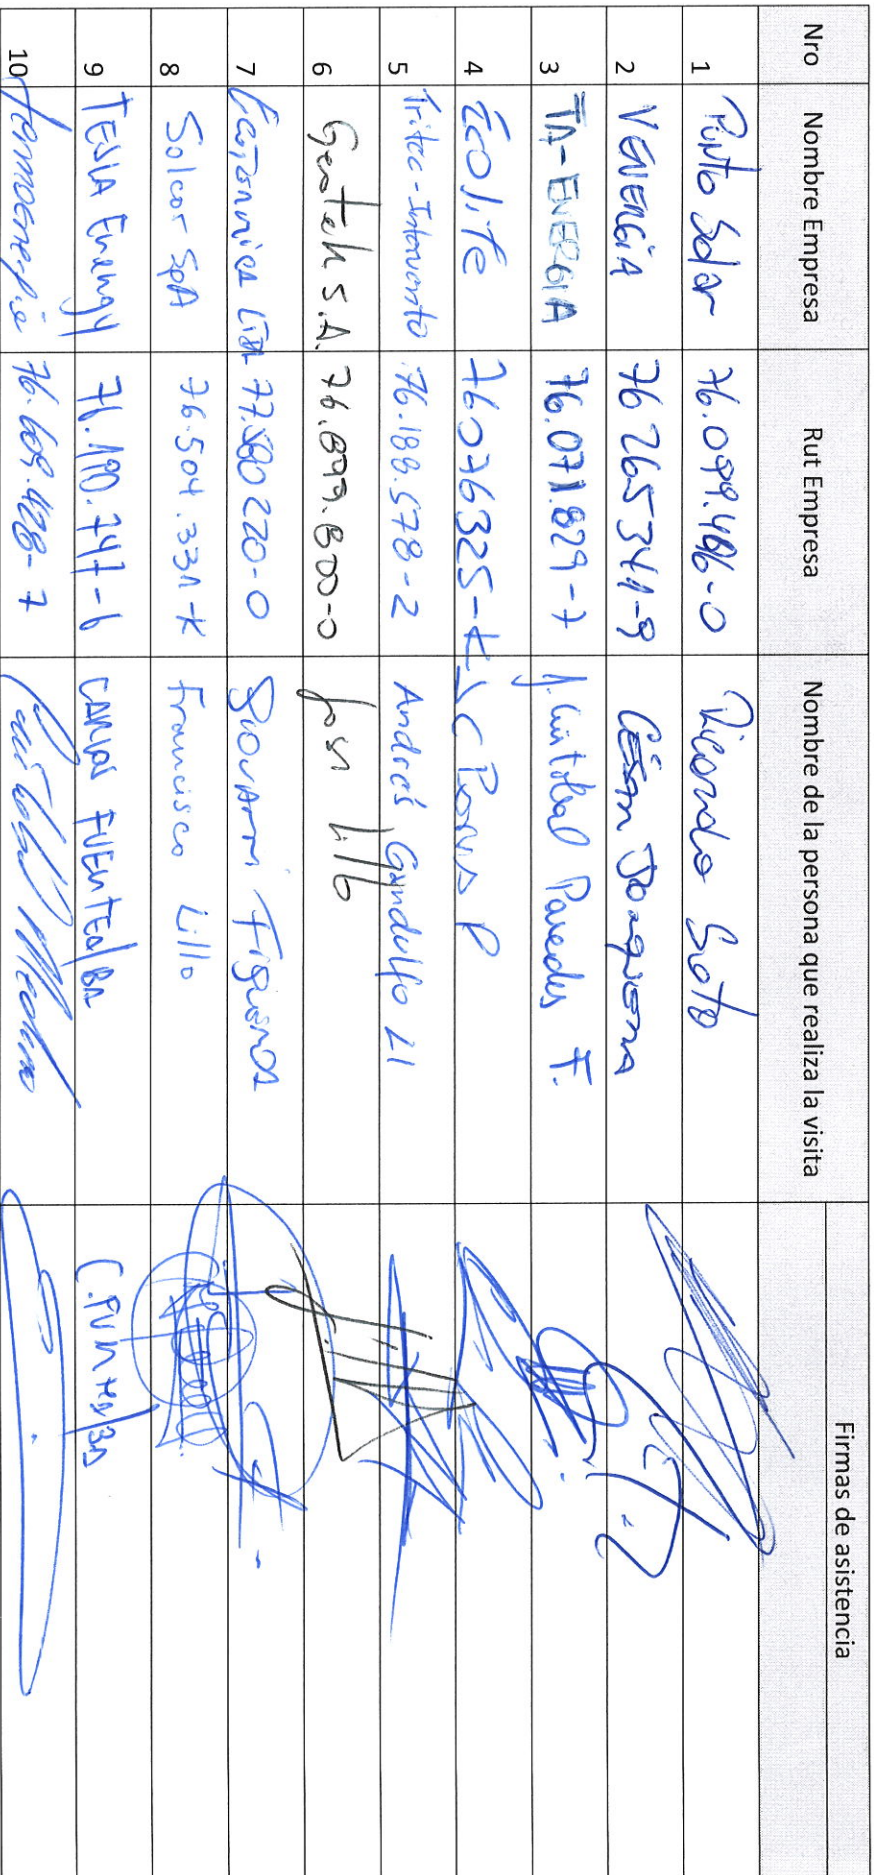 Nro Nombre Empresa Rut Empresa Nombre de la persona que realiza la visita Firmas de asistencia
1 Punto Solar 76.099.486-0 Ricardo Soto
2 VENERGIA 76265341-9 César
3 TA-ENERGIA 76.071.829-7 J. Cristobal Paredes F.
4 Ecolife 76076325-K
5 Tritec-Intervento 76.188.578-2 Andrés Gandulfo Ll
6 S.A. 76.899.800-0 José Lillo
7 LTDA 77.580220-0 Giovanni Figueroa
8 Solcor SpA 76.504.331-K Francisco Lillo
9 TESLA Energy 76.190.747-6 CARLOS FUENTEALBA
10 Termoenergía 76.609.428-7